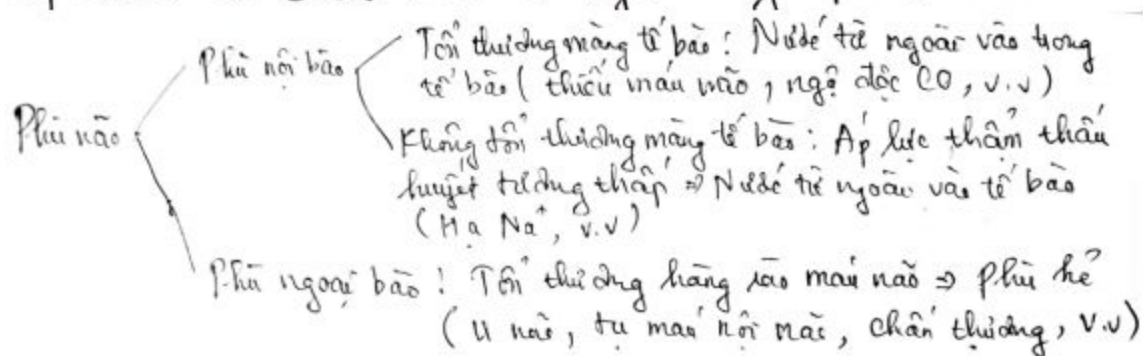 Phù nội bào
Tổn thương màng tế bào : Nước từ ngoài vào trong
tế bào ( thiếu máu não , ngộ độc CO , v.v )
Phù não
Không tổn thương màng tế bào : Áp lực thẩm thấu
huyết tương thấp ⇒ Nước từ ngoài vào tế bào
( Hạ Na⁺, v.v )
Phù ngoại bào : Tổn thương hàng rào máu não ⇒ Phù kẽ
( U não , tụ máu nội não , chấn thương , v.v )